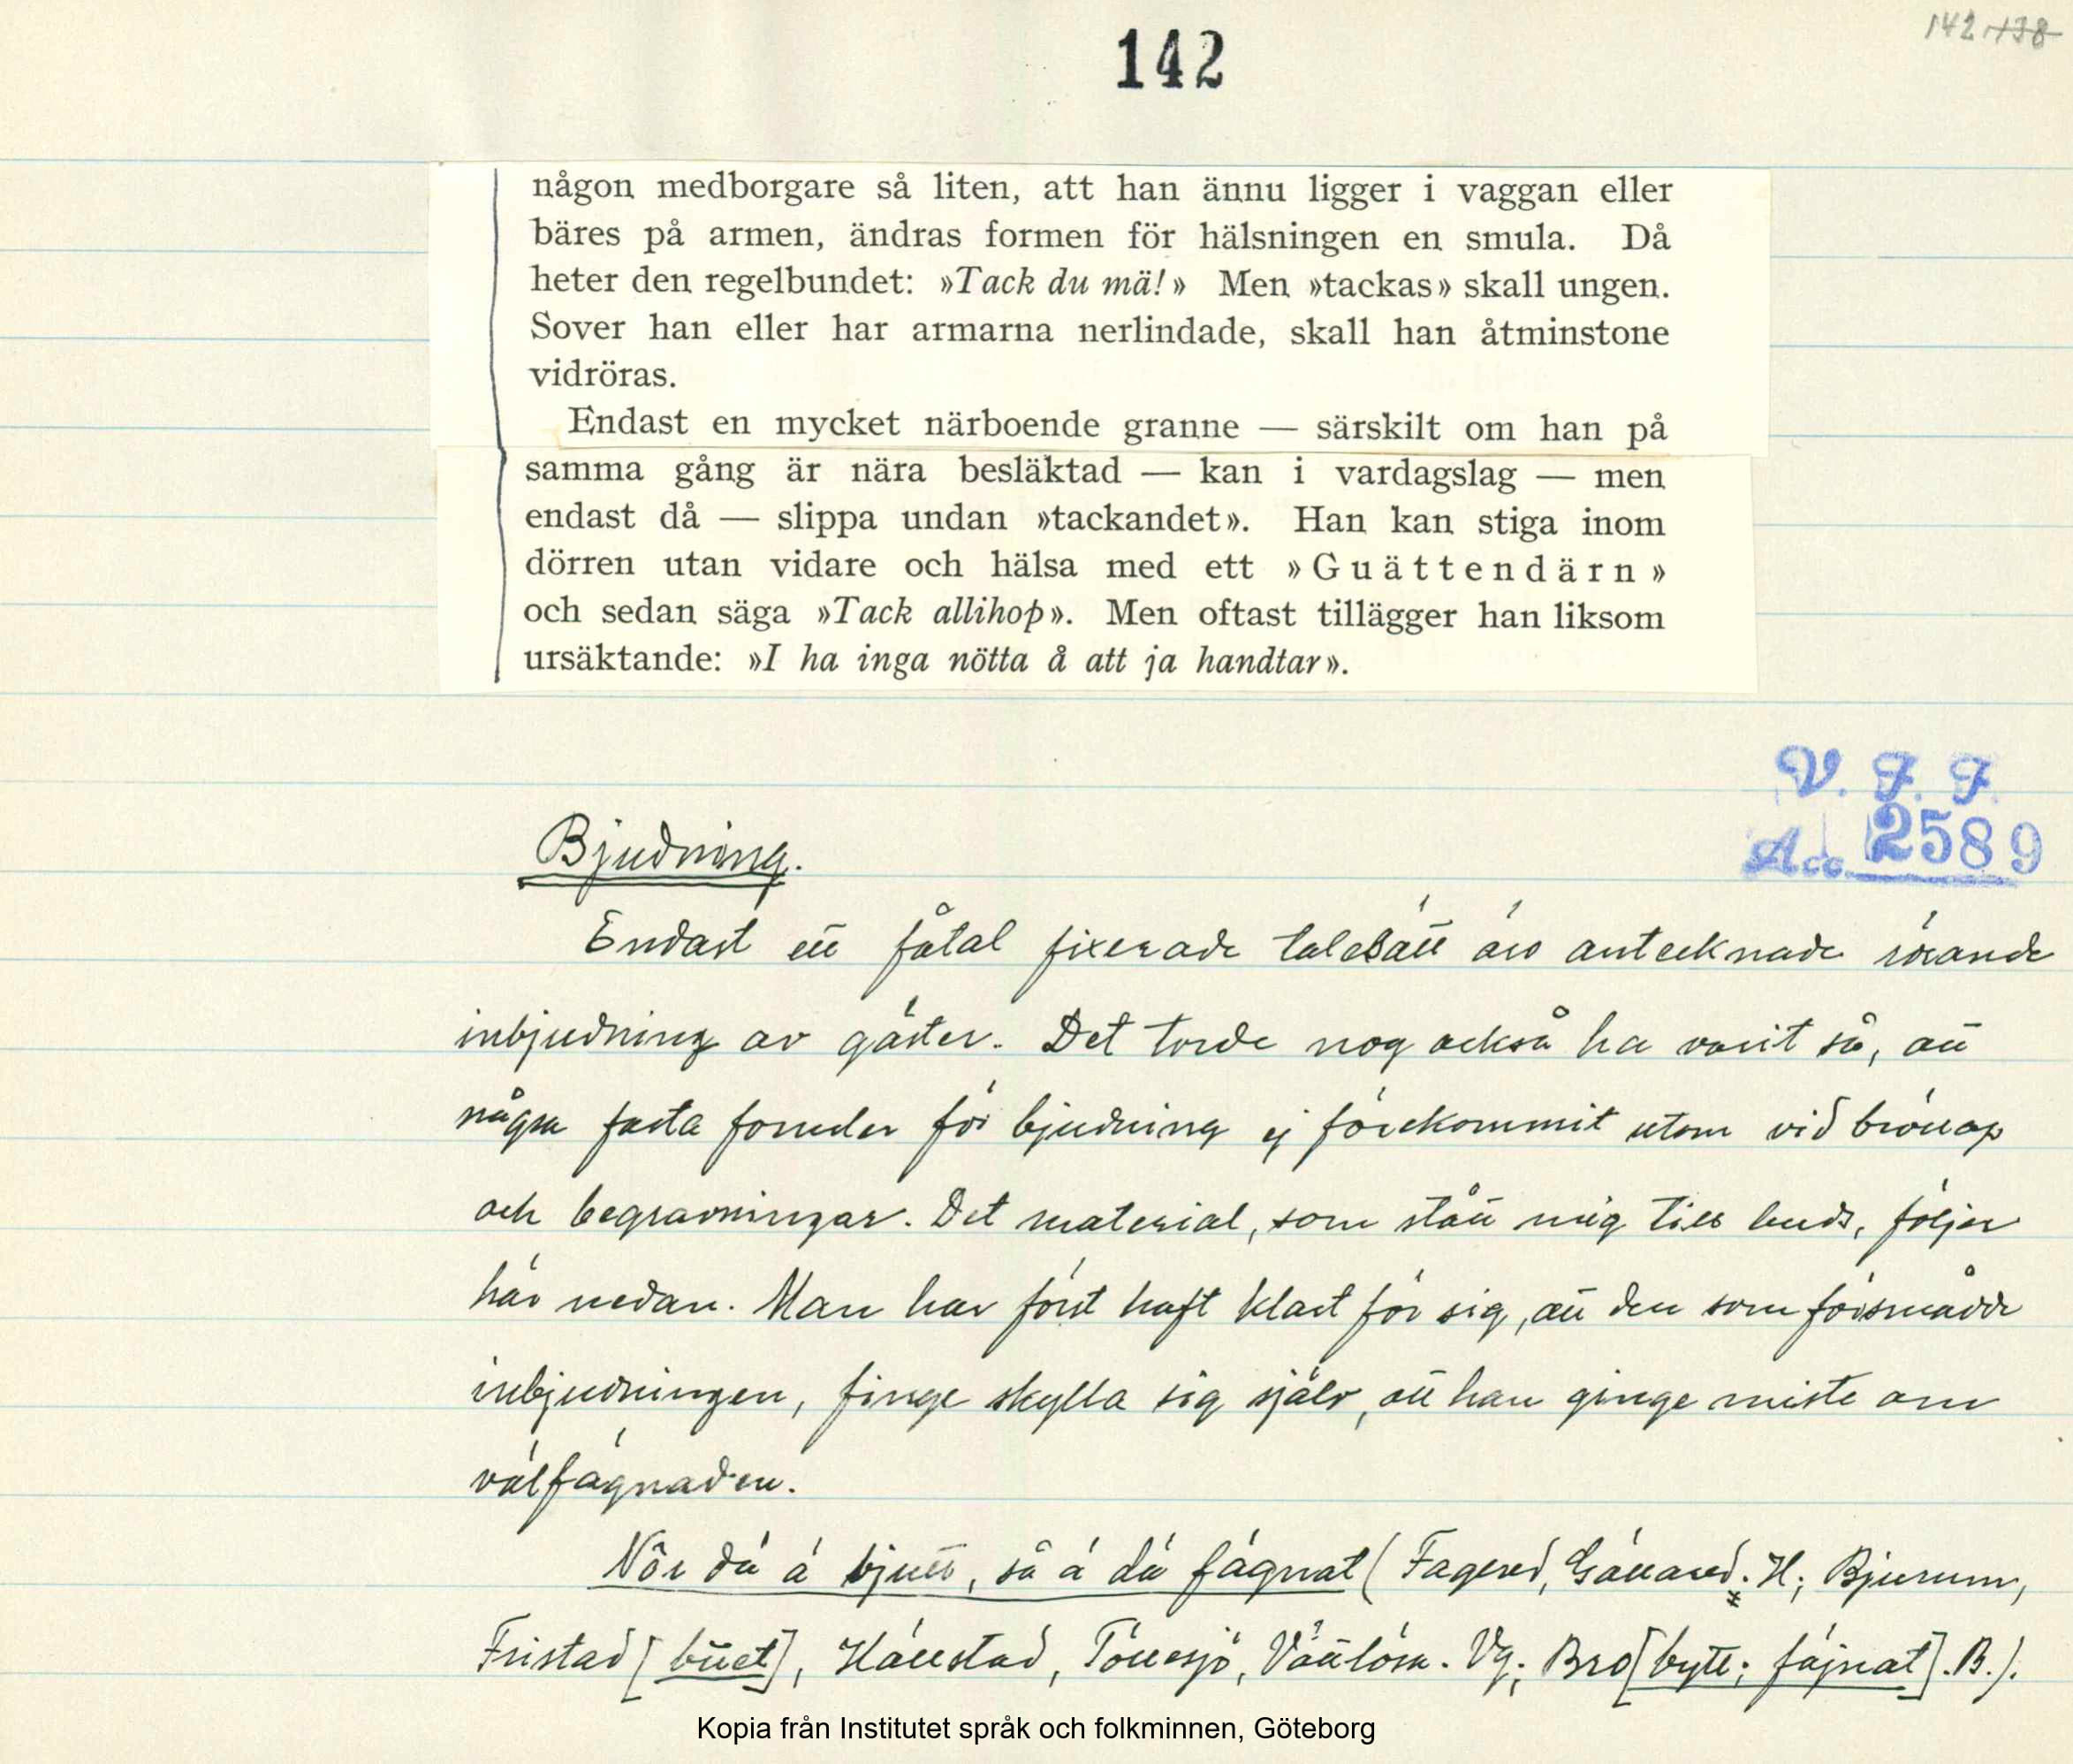 142
142 138
någon medborgare så liten, att han ännu ligger i vaggan eller
bäres på armen, ändras formen för hälsningen en smula. Då
heter den regelbundet: »Tack du mä!» Men »tackas» skall ungen.
Sover han eller har armarna nerlindade, skall han åtminstone
vidröras.
Endast en mycket närboende granne — särskilt om han på
samma gång är nära besläktad — kan i vardagslag — men
endast då — slippa undan »tackandet». Han kan stiga inom
dörren utan vidare och hälsa med ett »Guättendärn»
och sedan säga »Tack allihop». Men oftast tillägger han liksom
ursäktande: »I ha inga nötta å att ja handtar».
V. F. F.
Acc. 2589
Bjudning.
Endast ett fåtal fixerade talesätt äro antecknade rörande
inbjudning av gäster. Det torde nog också ha varit så, att
några fasta formler för bjudning ej förekommit utom vid bröllop
och begravningar. Det material, som stått mig till buds, följer
här nedan. Man har först haft klart för sig, att den som försmådde
inbjudningen, finge skylla sig själv, att han ginge miste om
välfägnaden.
Nôr dä ä bjutt, så ä dä fägnat (Fagered, Gällared. H; Bjurum,
Fristad [būet], Hällstad, Töllesjö, Våmlösa. Vg; Bro [bytt; fäjnat]. B.).
Kopia från Institutet språk och folkminnen, Göteborg